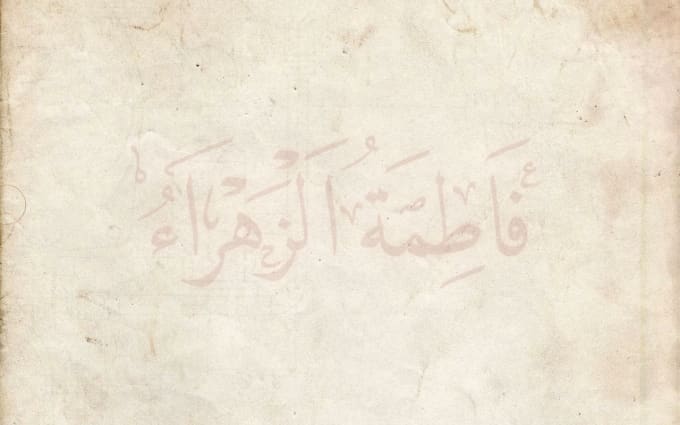 فَاطِمَةُ الزَهْرَاءُ